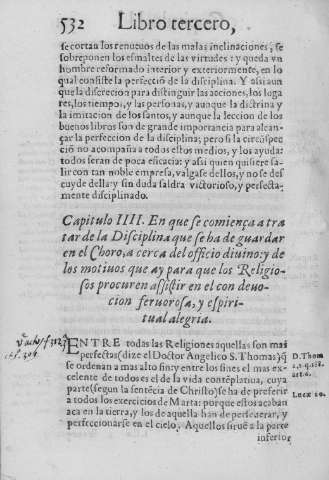 532 Libro tercero,
se cortan los renueuos de las malas inclinaciones, se
sobreponen los esmaltes de las virtudes: y queda vn
hombre reformado interior y exteriormente, en lo
qual consiste la perfeció de la disciplina. Y assi aun
que la discrecion para distinguir las acciones, los loga
res, los tiempos, y las personas, y aunque la doctrina y
la imitacion de los santos, y aunque la leccion de los
buenos libros son de grande importancia para alcan-
çar la perfeccion de la disciplina; pero si la circunspe
ció no acompaña a todos estos medios, y los ayuda:
todos seran de poca eficacia: y assi quien quisiere sa-
lir con tan noble empresa, valgase dellos, y no se des
cuyde della y sin duda saldra victorioso, y perfecta-
mente disciplinado.
Capitulo IIII. En que se comiença a tra
tar de la Disciplina que se ha de guardar
en el Choro, a cerca del officio diuino: y de
los motiuos que ay para que los Religio-
sos procuren assistir en el con deuo-
cion feruorosa, y espiri-
tual alegria.
ENTRE todas las Religiones aquellas son mas
perfectas (dize el Doctor Angelico S. Thomas) q̃
se ordenan a mas alto fin: y entre los fines el mas ex-
celente de todos es el de la vida contẽplatiua, cuya
parte (segun la sentẽcia de Christo) se ha de preferir
a todos los exercicios de Marta: porque estos acaban
aca en la tierra, y los de aquella han de perseuerar, y
perficcionarse en el cielo. Aquellos siruẽ a la parte
inferior
D. Thom
Lucæ 10.